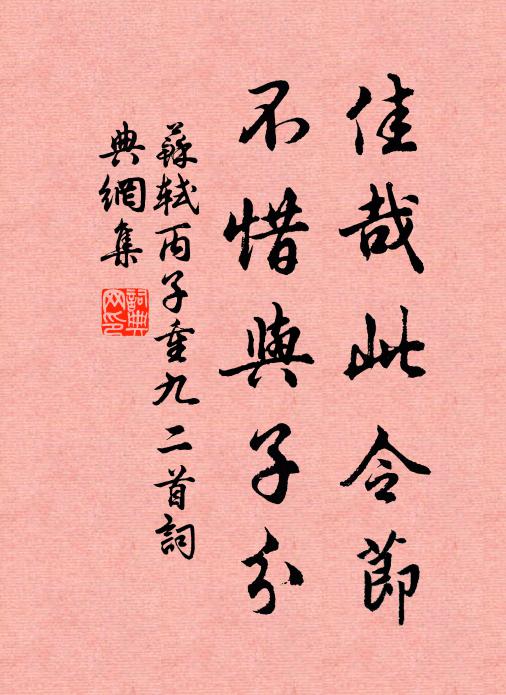 佳哉此令節
不惜與子分
蘇軾丙子重九二首詞
典網集
詞典网印